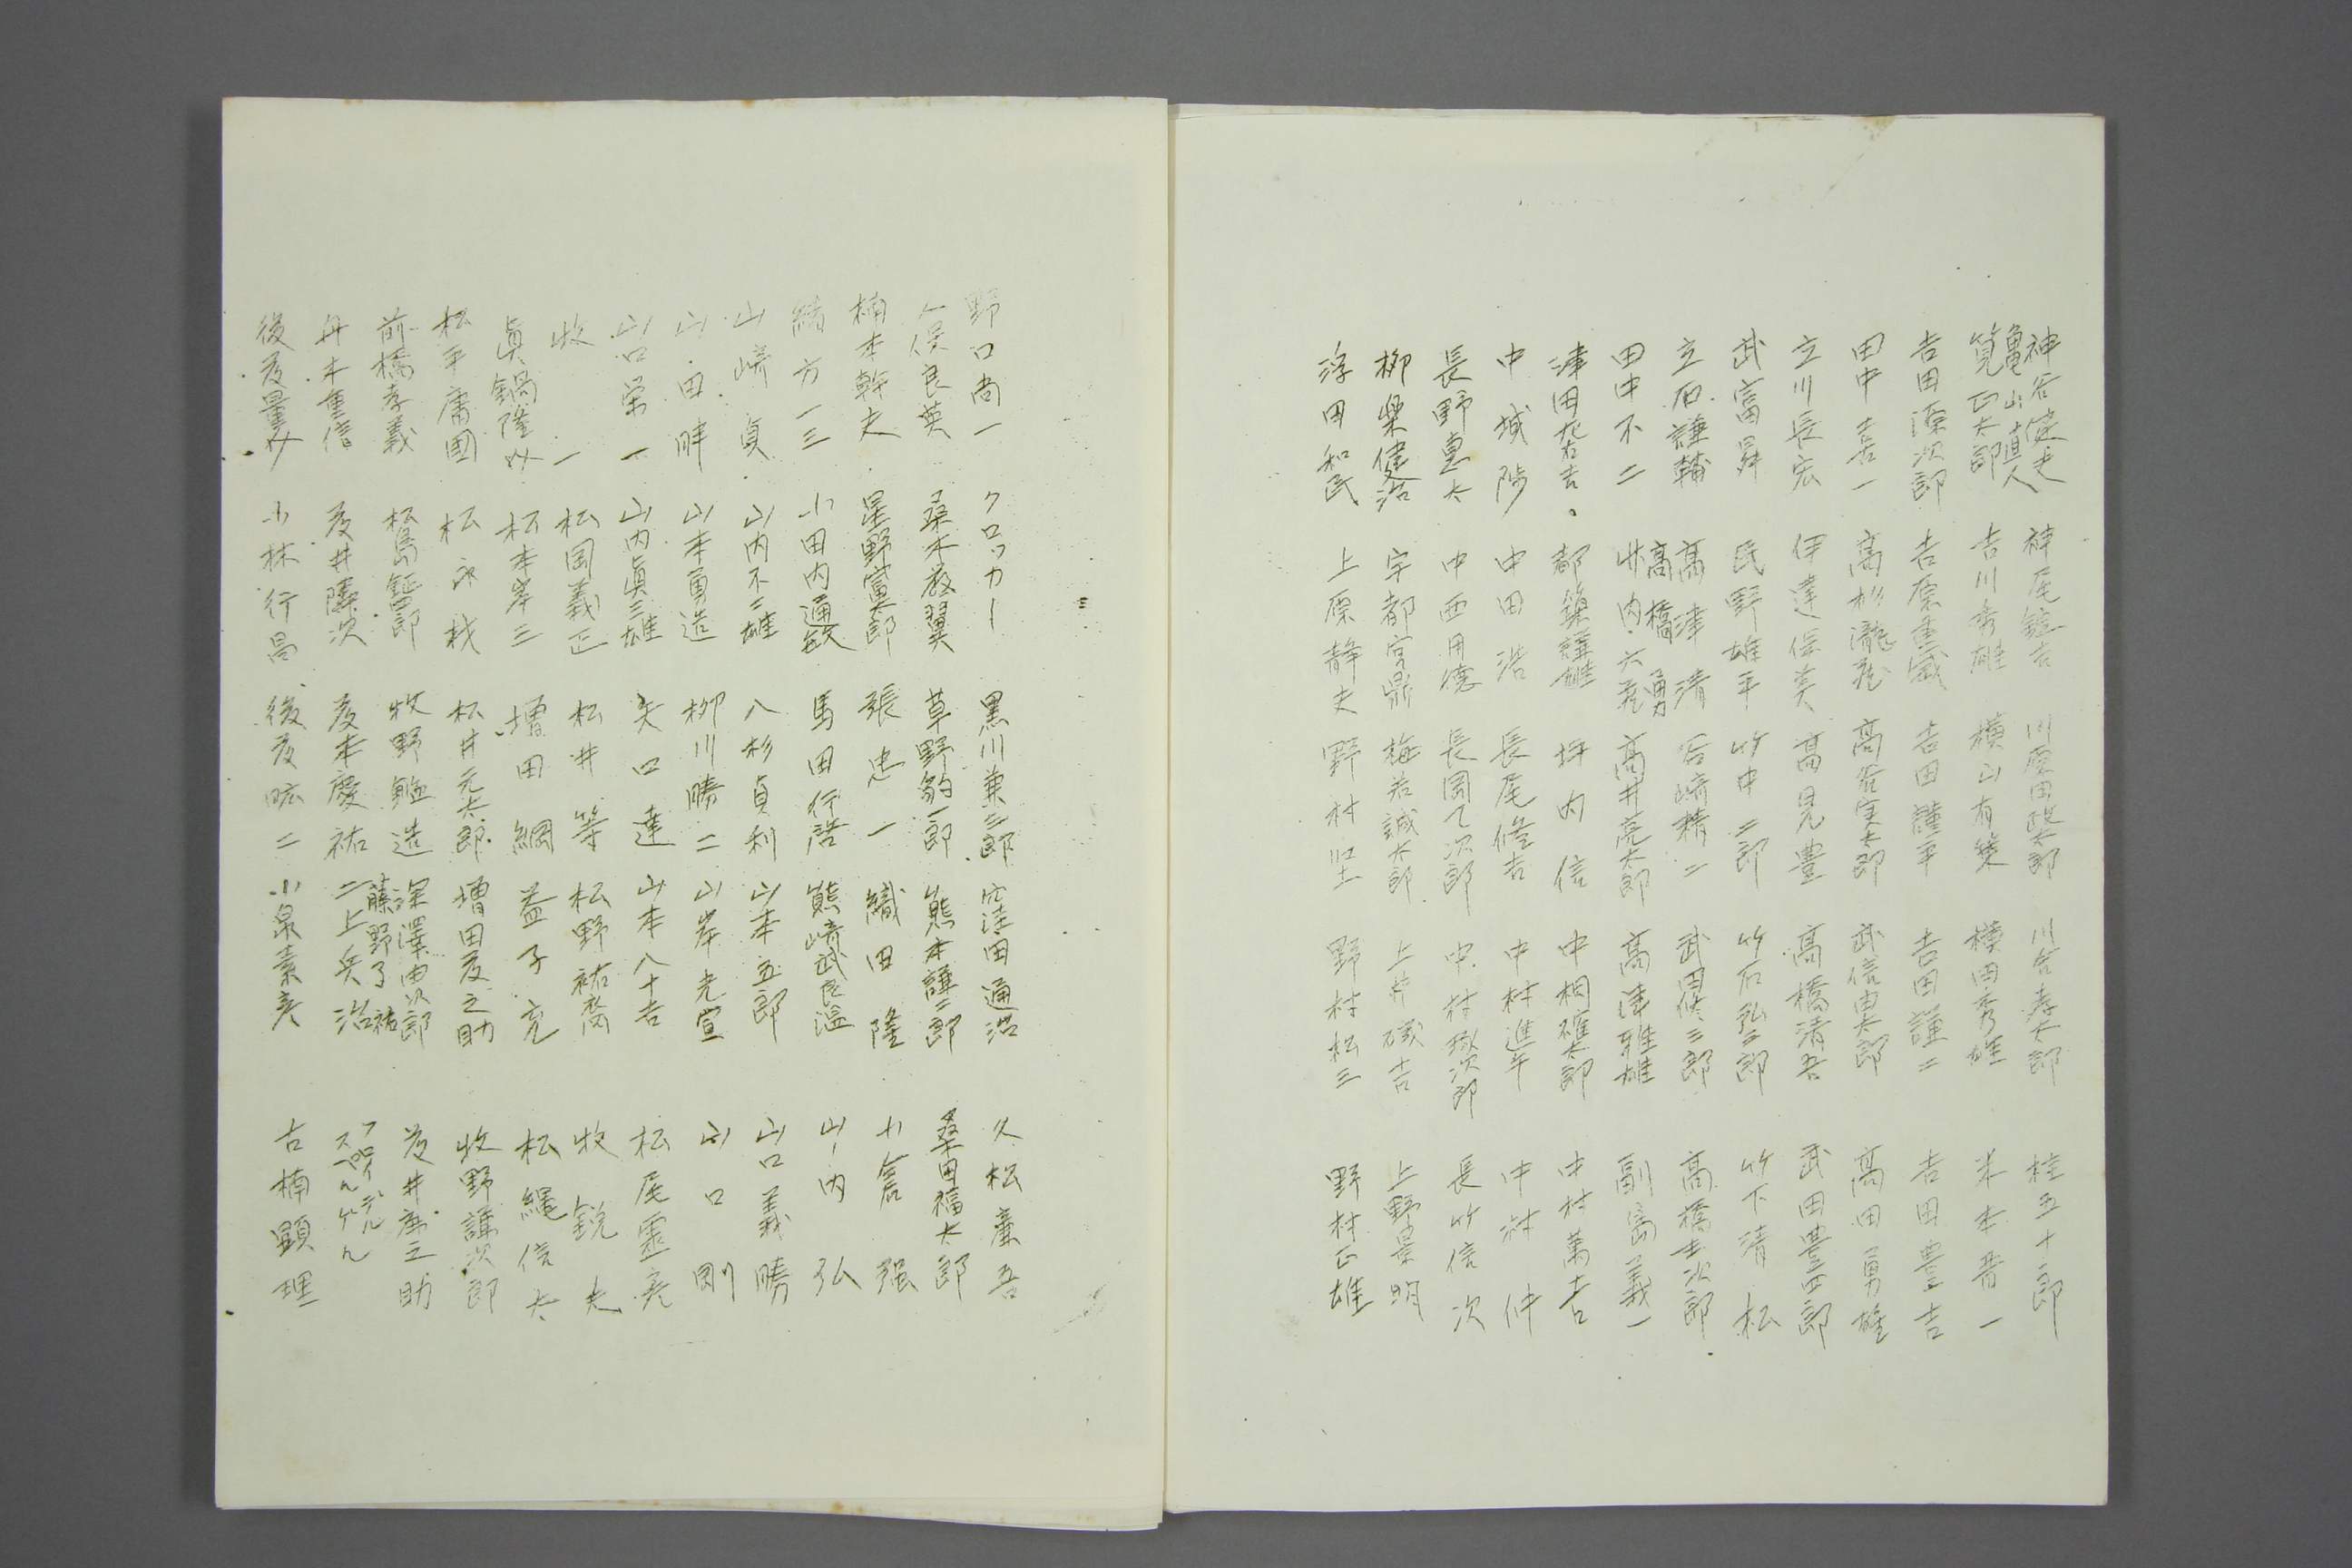 神谷健夫 神尾錠吉 川原田政太郎 川合孝太郎 桂五十二郎
亀山直人
筧正太郎 吉川秀雄 横山有策 横田秀雄 米本晋一
吉田源次郎 吉原重威 吉田謹平 吉田謹二 吉田豊吉
田中喜一 高杉瀧蔵 高谷実太郎 武信由太郎 高田勇雄
立川長宏 伊達保美 高見豊 高橋清吾 武田豊四郎
武富昇 民野雄平 竹中二郎 竹石弘三郎 竹下清松
立石謙輔 高津清 谷崎精二 武田修三郎 高橋圭次郎
高橋勇
田中不二 竹内六蔵 高井亮太郎 高津雅雄 副島義一
津田左右吉 都築謹雄 坪内信 中桐確太郎 中村萬吉
中城陟 中田浩 長尾修吉 中村進午 中村仲
長野惠太 中西用徳 長岡乙次郎 中村琢次郎 長竹信次
柳樂健治 宇都宮鼎 梅若誠太郎 上井磯吉 上野景明
浮田和民 上原静夫 野村堅 野村松三 野村正雄
野口尚一 クロッカー 黒川兼三郎 窪田通浩 久松廉吾
俣良英 桑木嚴翼 草野豹一郎 熊本謙二郎 桑田福太郎
楠本幹夫 星野富太郎 張忠一 織田隆 小倉强
緒方一三 小田内通敏 馬田行啓 熊崎武良温 山内弘
山崎貞 山内不二雄 八杉貞利 山本五郎 山口義勝
山田胖 山本勇造 柳川勝二 山岸光宣 山口剛
山口栄一 山内眞三雄 矢口達 山本八十吉 松尾霊彦
牧一 松岡義正 松井等 松野祐裔 牧鋭夫
眞鍋隆 松本岸三 増田綱 益子亮 松縄信太
松平康國 松永材 松井元太郎 増田之助 牧野謙次郎
前橋孝義 松島鉦四郎 牧野鑑造 深澤由次郎 井康之助
藤野了祐
舟木重信 井隆次 本慶祐 二上兵治
後 小林行昌 後 二 小泉素彦 古楠顕理